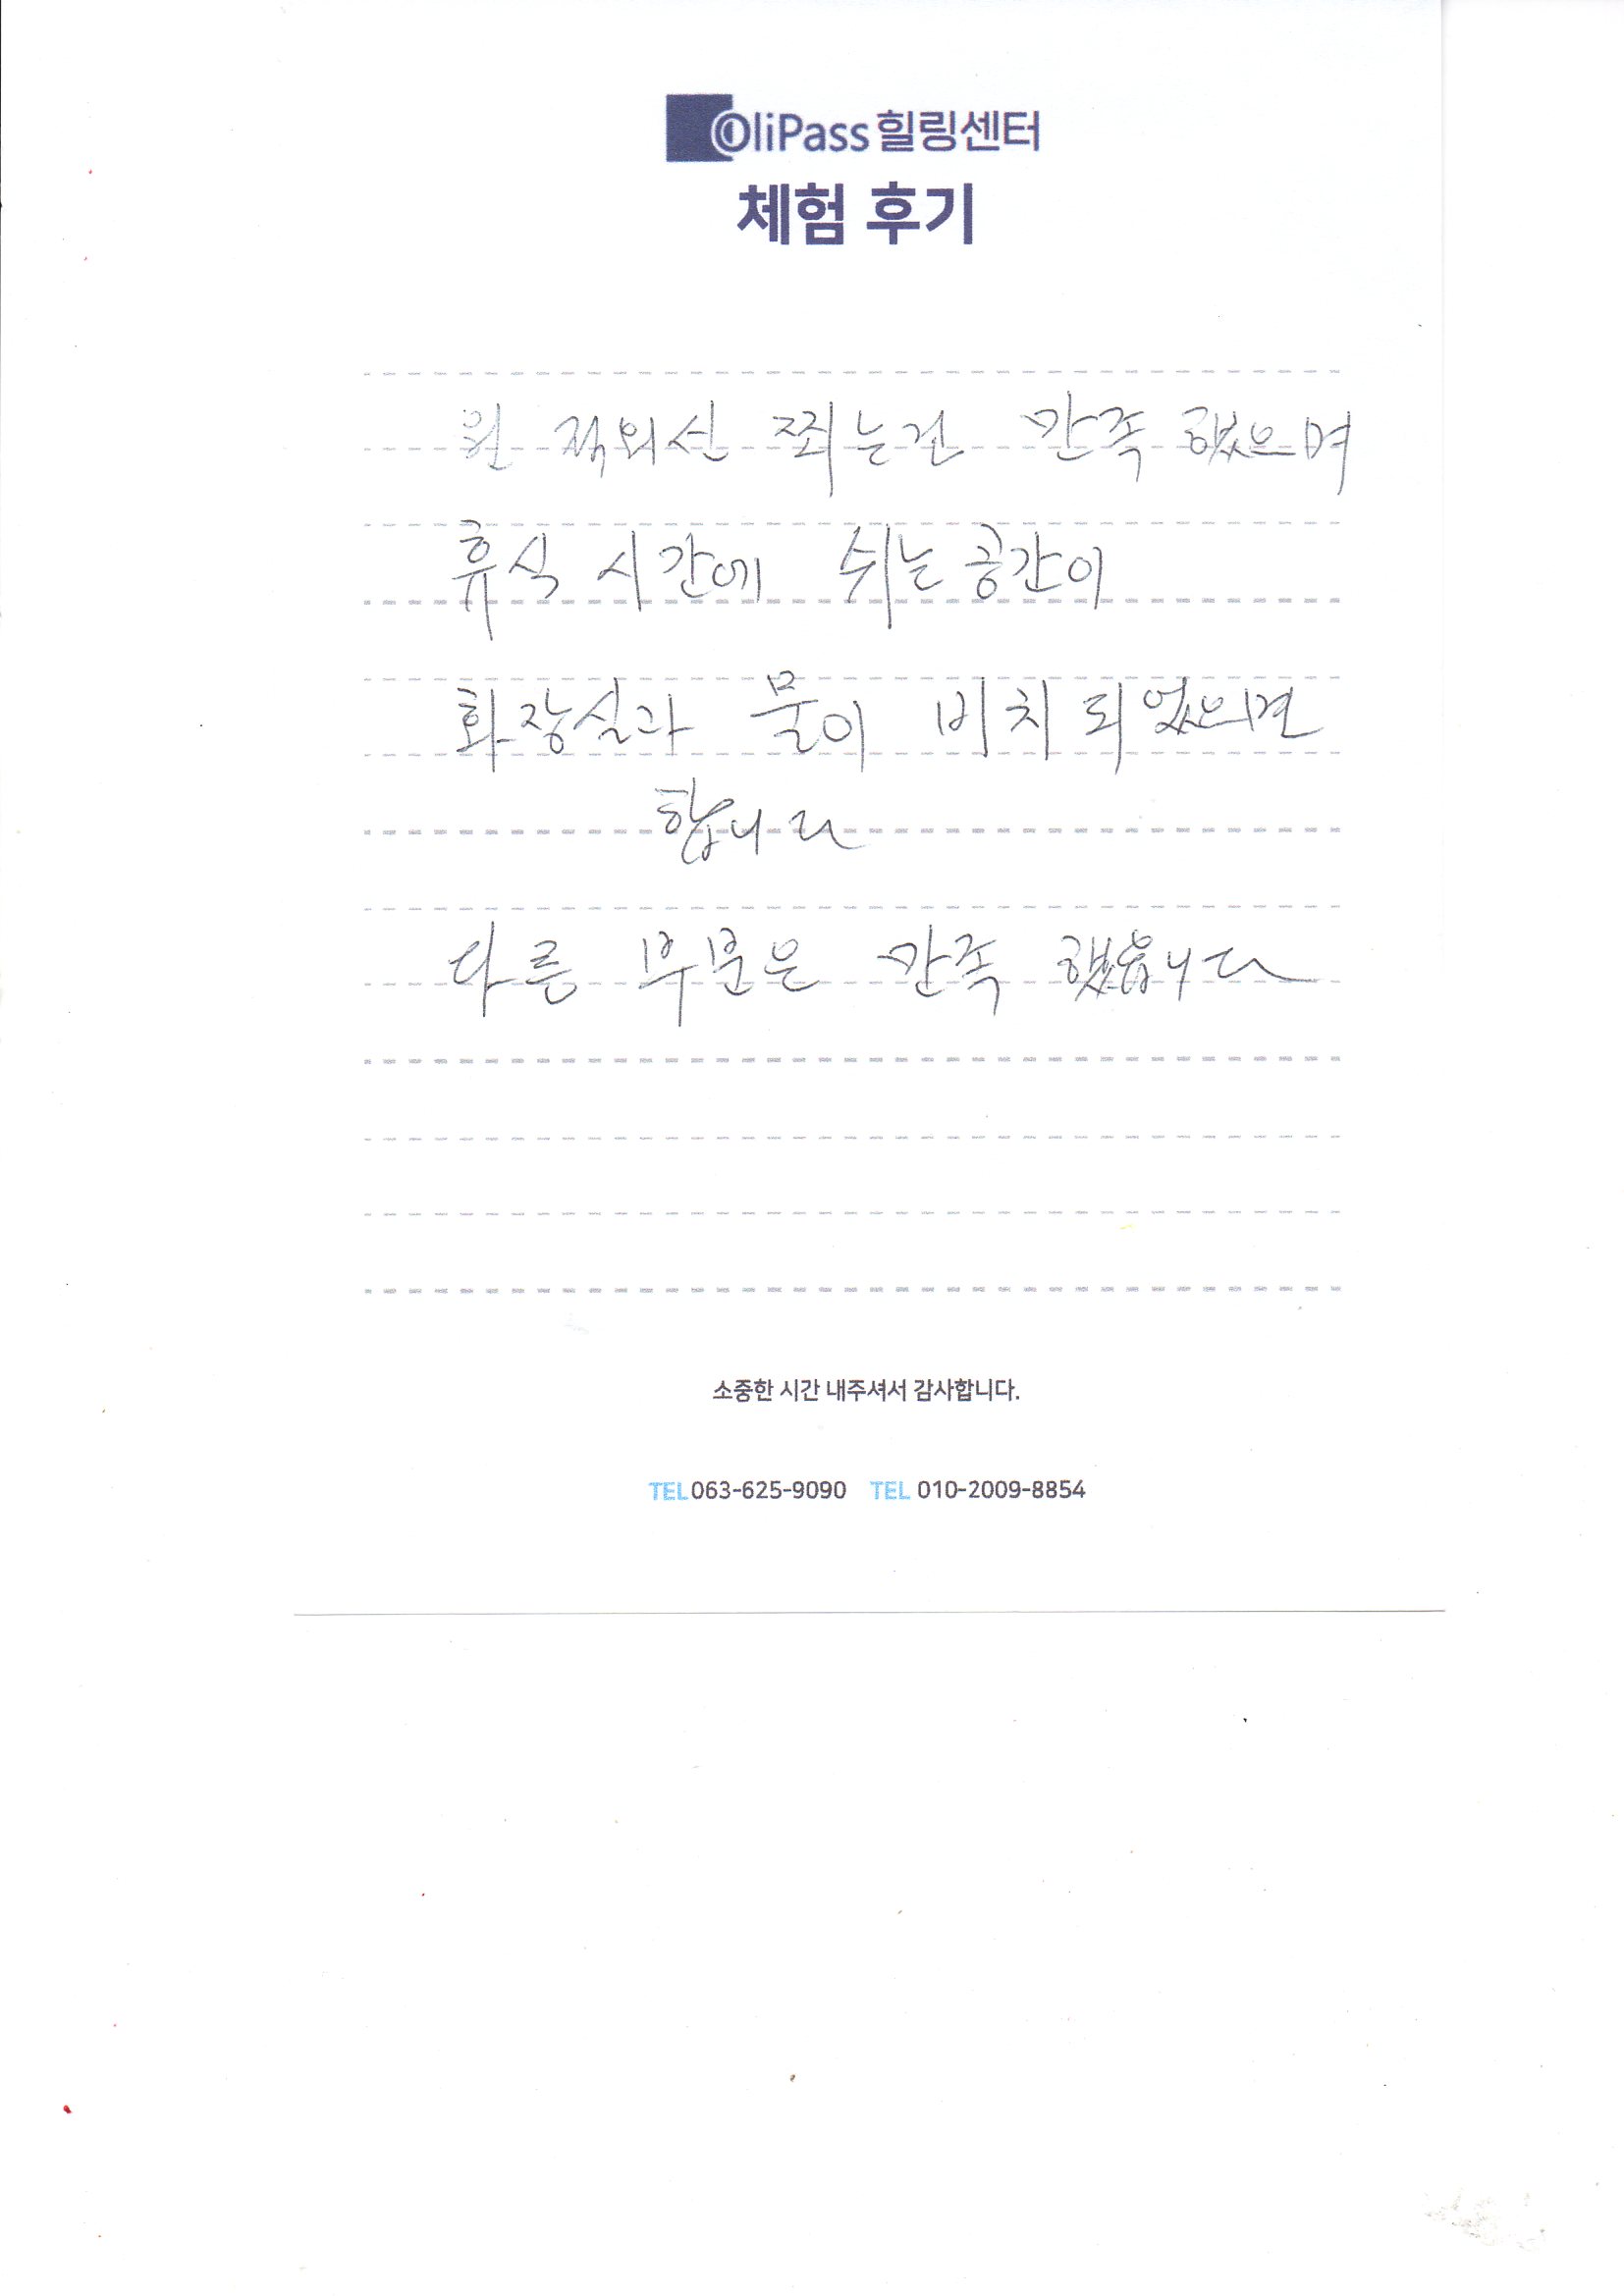 OliPass 힐링센터
체험 후기
원 적외선 쬐는건 만족 했으며
휴식 시간에 쉬는 공간이
화장실과 물이 비치 되었으면
합니다
다른 부분은 만족 했습니다
소중한 시간 내주셔서 감사합니다.
TEL 063-625-9090 TEL 010-2009-8854